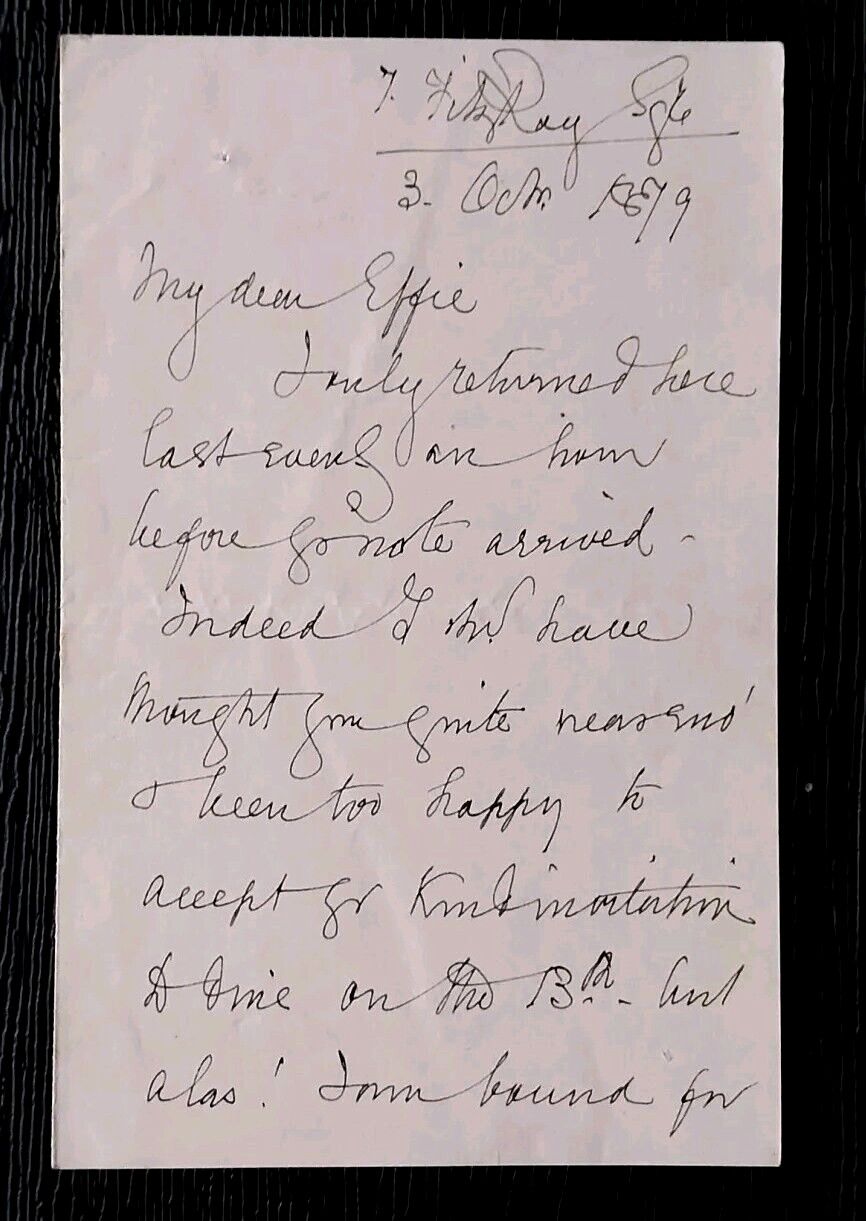 7. FitzRoy Sqre
3. Octr. 1879
My dear Effie
I only returned here
last eveng an hour
before yr note arrived -
Indeed I shd have
thought you quite near eno'
& been too happy to
accept yr kind invitation
to dine on the 13th. - but
alas! I am bound for